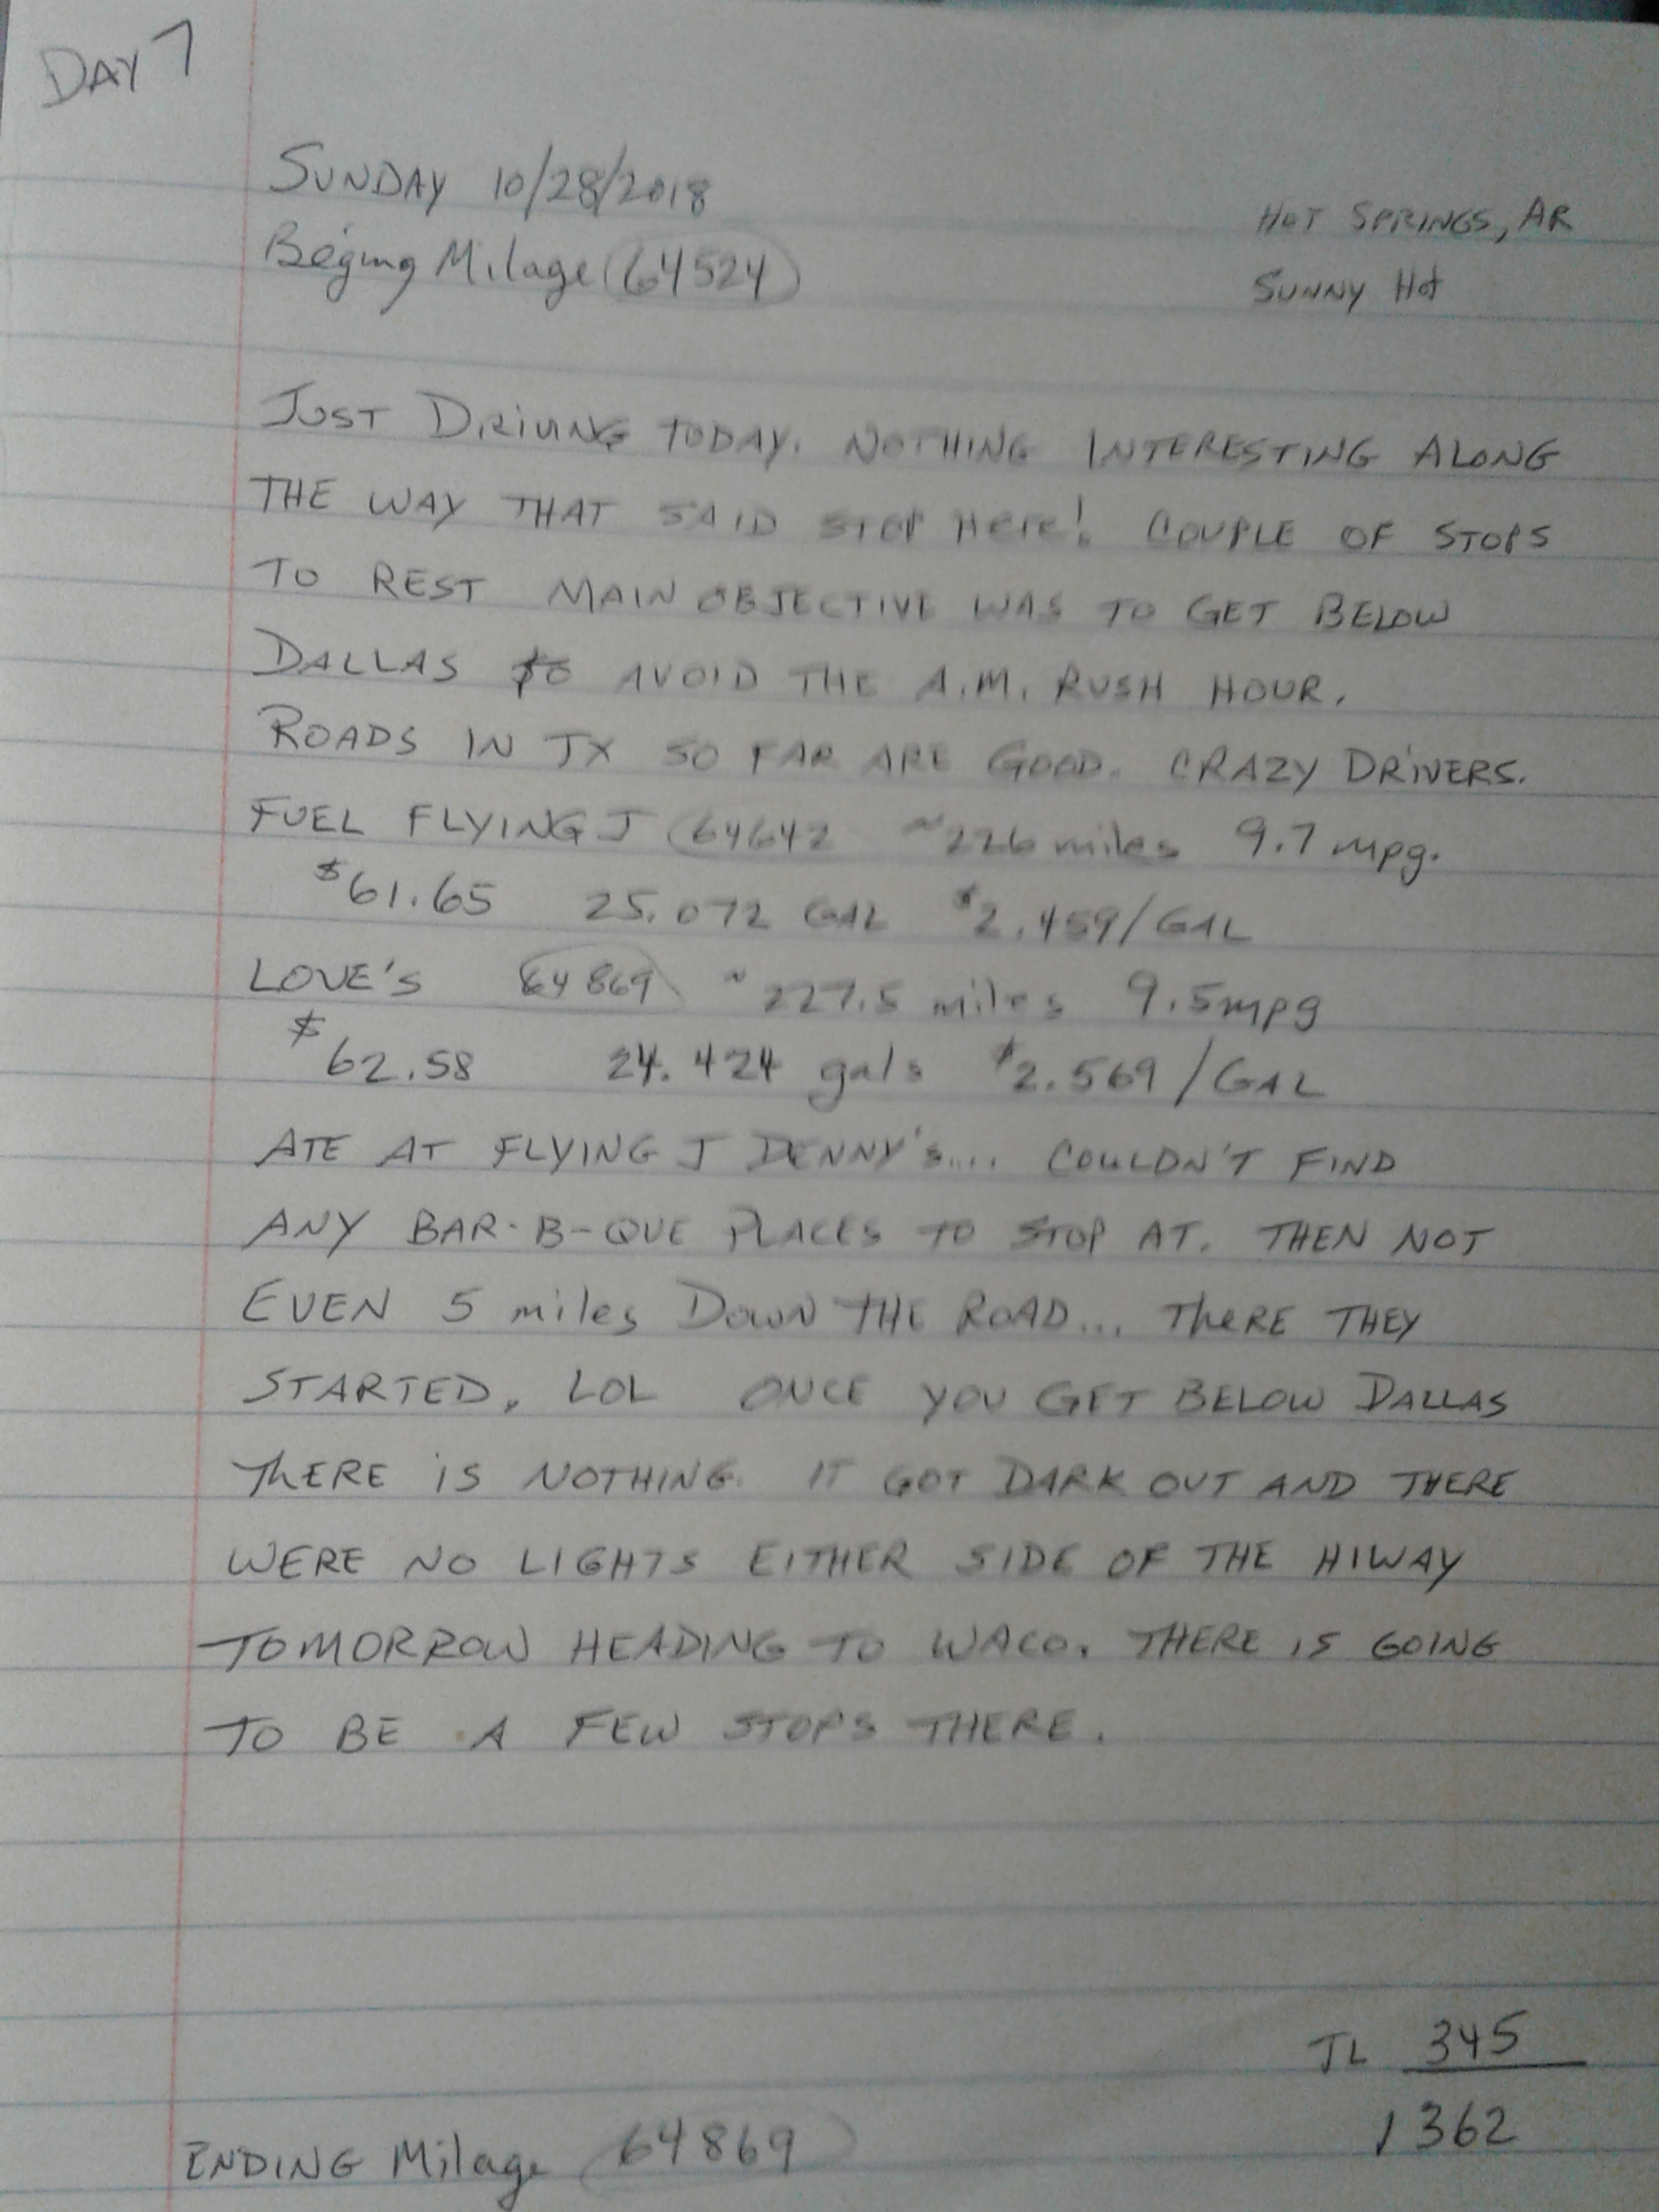 DAY 7
SUNDAY 10/28/2018
Beging Milage 64524
HOT SPRINGS, AR
SUNNY Hot
JUST DRIVING TODAY. NOTHING INTERESTING ALONG
THE WAY THAT SAID STOP HERE! COUPLE OF STOPS
TO REST MAIN OBJECTIVE WAS TO GET BELOW
DALLAS to AVOID THE A.M. RUSH HOUR.
ROADS IN TX SO FAR ARE GOOD. CRAZY DRIVERS.
FUEL FLYING J 64642 ~226 miles 9.7 mpg.
$61.65 25.072 GAL $2.459/GAL
LOVE'S 64869 ~227.5 miles 9.5mpg
$62.58 24.424 gals $2.569/GAL
ATE AT FLYING J DENNY'S.... COULDN'T FIND
ANY BAR-B-QUE PLACES TO STOP AT. THEN NOT
EVEN 5 miles DOWN THE ROAD... THERE THEY
STARTED, LOL ONCE YOU GET BELOW DALLAS
THERE IS NOTHING. IT GOT DARK OUT AND THERE
WERE NO LIGHTS EITHER SIDE OF THE HIWAY
TOMORROW HEADING TO WACO. THERE IS GOING
TO BE A FEW STOPS THERE.
TL 345
1362
ENDING Milage 64869